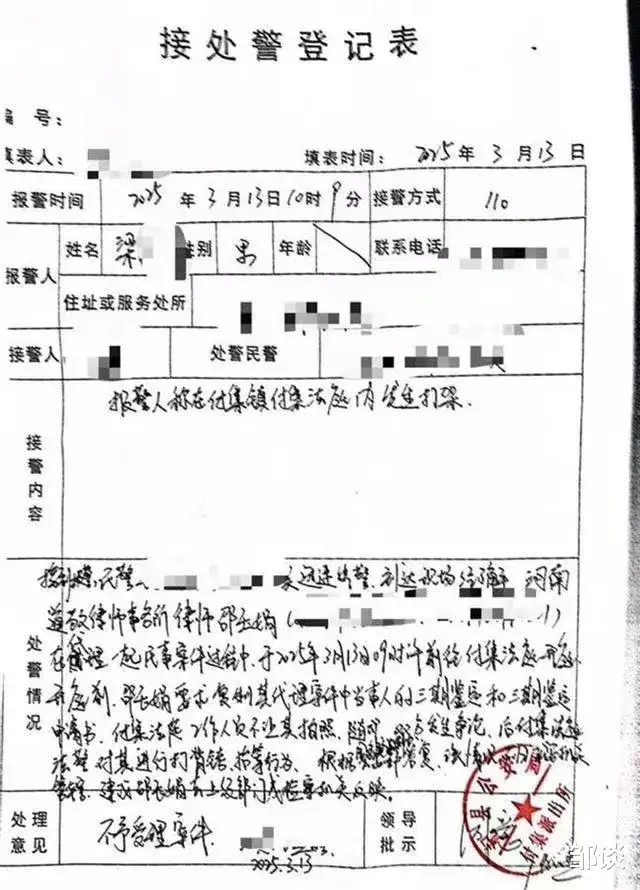 接处警登记表
编号：
填表人： 填表时间： 2025年3月13日
报警时间 2025年3月13日10时9分 接警方式 110
报警人 姓名 梁 性别 男 年龄 联系电话
住址或服务处所
接警人 处警民警
接警内容 报警人称在付集镇付集法庭内发生打架.
处警情况
接到报警,民警 迅速出警,到达现场经了解 河南
律师事务所律师邵
在代理一起民事案件过程中,于2025年3月13日09时许前往付集法庭开庭
开庭前,邵 娟要求复制其代理案件中当事人的三期鉴定和三期鉴定
申请书,付集法庭工作人员不让其拍照,随后双方发生争论,后付集法庭
法警对其进行打背铐、指等行为、根据
管理,建议邵 娟去上级部门或检察机关反映.
处理意见 不予受理案件 2025.3.13 领导批示
县公安局 付集派出所
邹谈